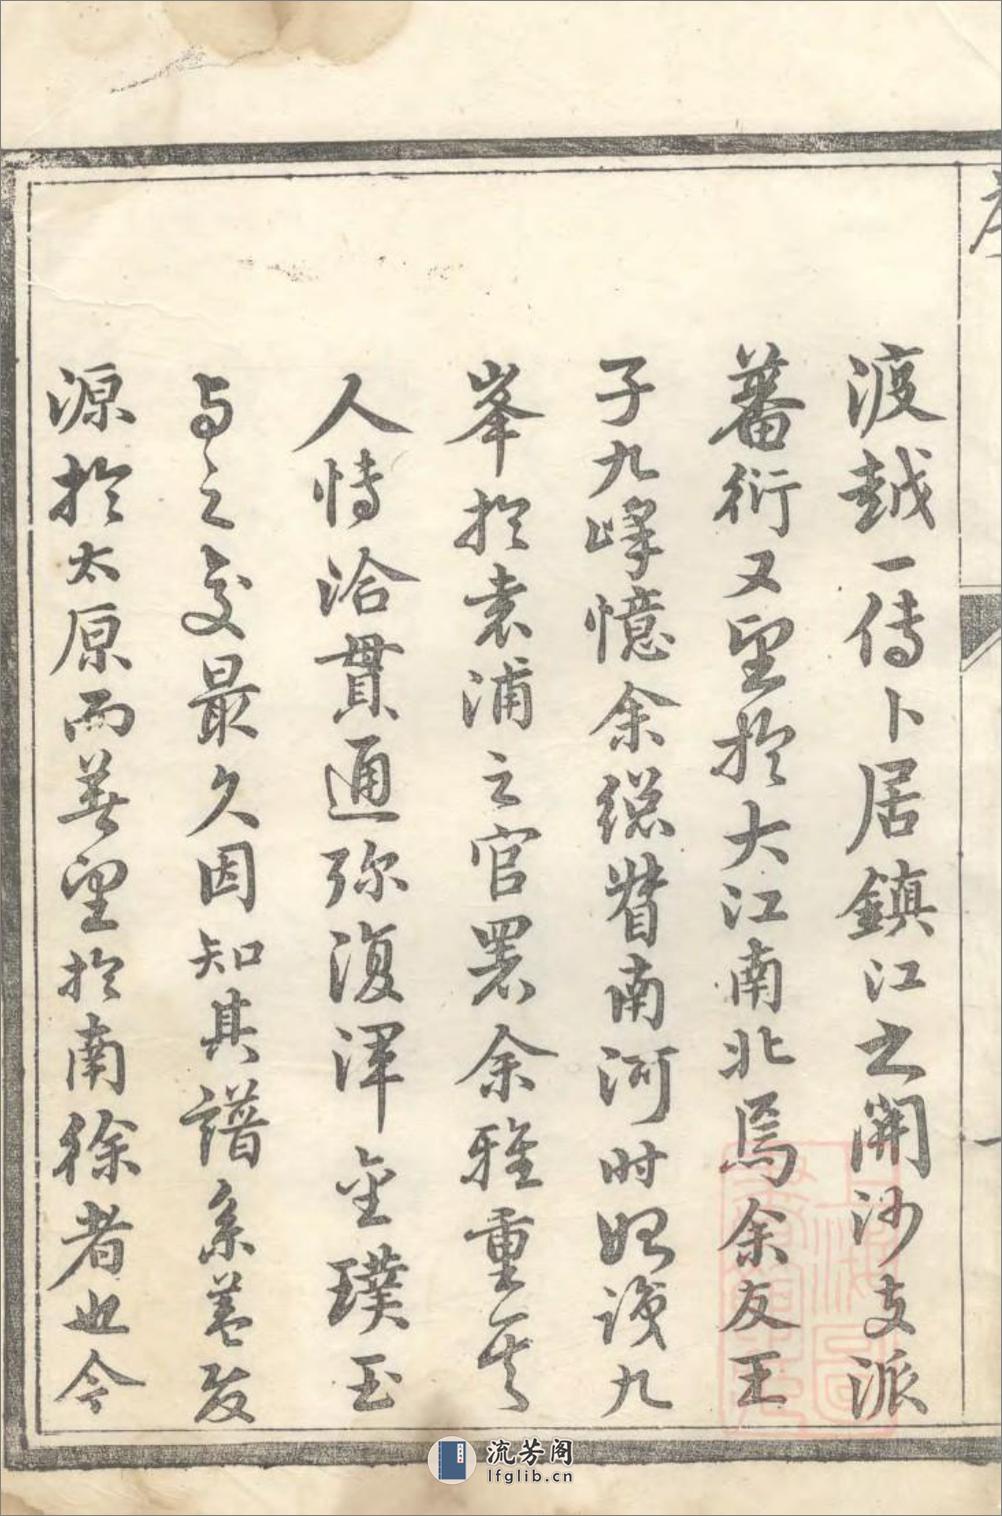 渡越一傳卜居鎮江之開沙支派
蕃衍又望於大江南北焉余友王
子九峰憶余總督南河時始識九
峯於袁浦之官署余雅重其
人恃洽貫通弥復渾金璞玉
与之交最久因知其譜系盖发
源於太原而著望於南徐者也今
流芳阁
lfglib.cn